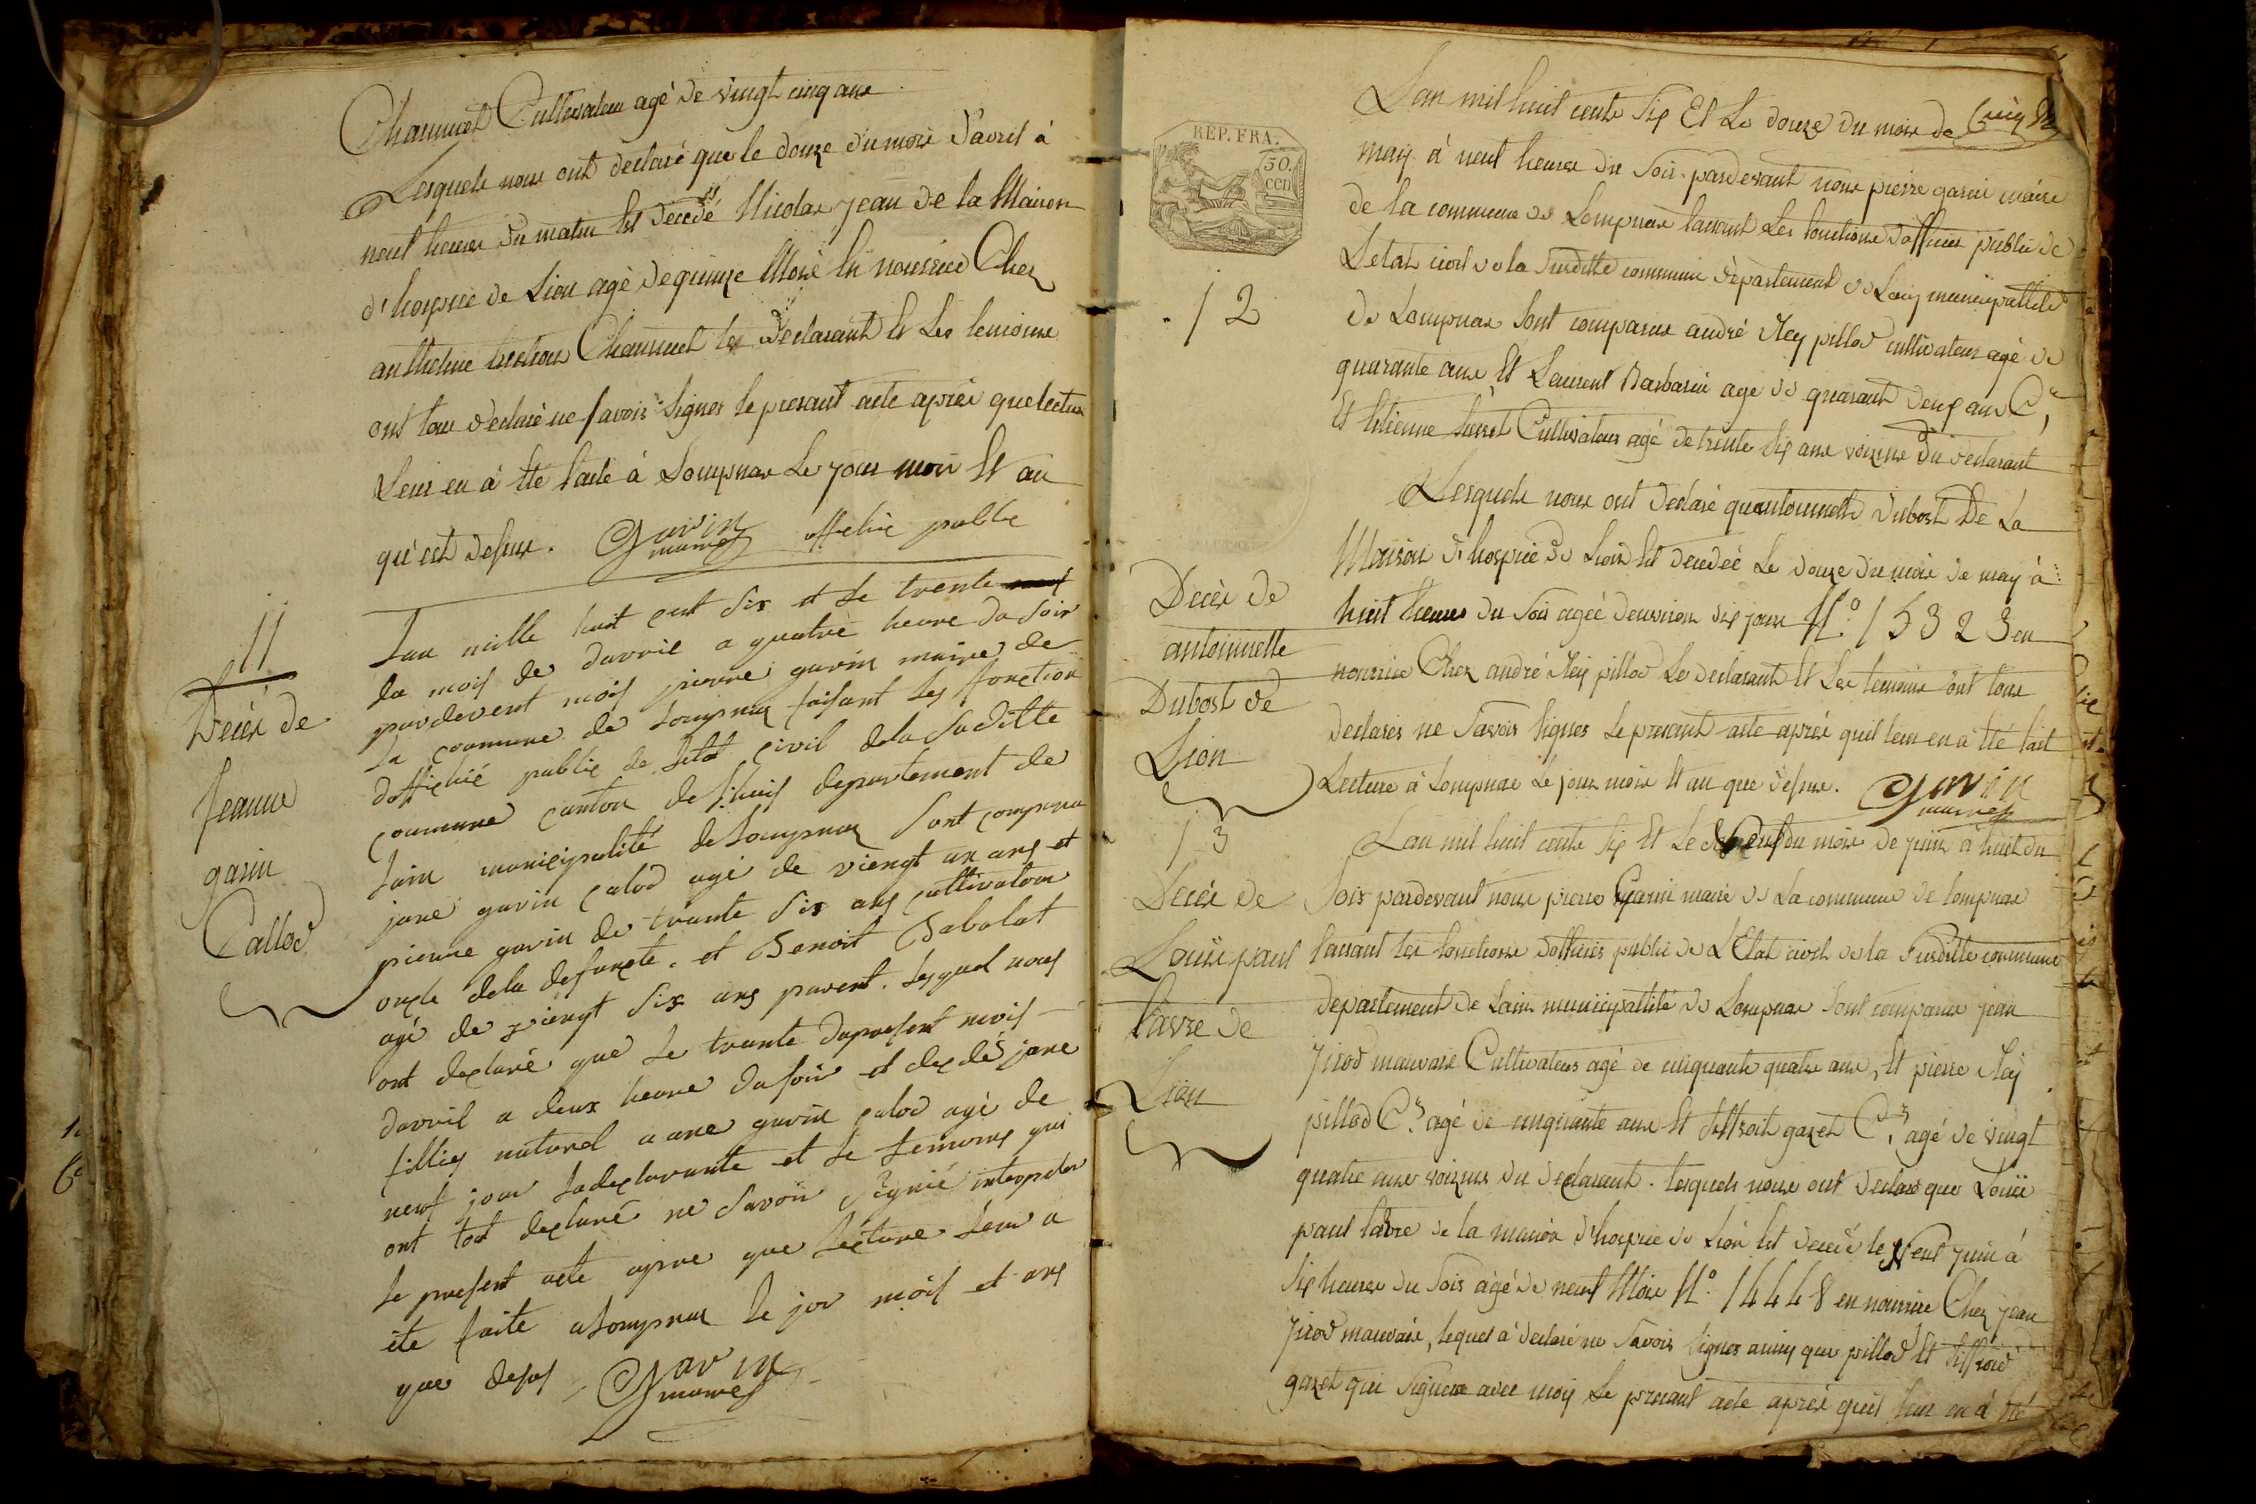 Chaumet Cultivateur agé de vingt cinq ans
Lesquels nous ont declaré que le douze du mois d'avril à
neuf heures du matin Est decedé Nicolas jean de la Maison
d'hospice de Lion agé de quinze Mois En nourrice Chez
anthelme Chaumet les declarant Et Les temoins
ont tous declaré ne savoir signer le present acte après que lecture
Leur en à été faite à Lompnas Le jour mois Et an
qu'est dessus. Garin maire officie public
11
Decès de
Jeanne
garin
Callod
Lan mille huit cent six et le trente
du mois de davril a quatre heure du soir
pardevent mois pierre garin maire de
la commune de Lompnas faisant les fonction
dofficié public de letat civil dela suditte
commune canton de lhuis departement de
lain municipalité de Lompnas sont comparu
jane garin calod agé de viengt un ans et
pierre garin de trante six ans cultivatour
oncle dela defuncte. et Benoit Babolat
agé de viengt six ans parent. lesquel nous
ont declaré que le trante dupresent mois
davril a deux heure du soir et decedé jane
fillies naturel a ane garin calod agé de
neuf jour la declarante et le temoins qui
ont tout declaré ne savoir signié interpeler
le present acte apres que lecture leur a
eté faite a Lompnas le jor mois et ans
que desus Garin maire
REP. FRA.
50.
cen
12
Lan mil huit cents six Et Le douze du mois de
may à neuf heures du soir pardevant nous pierre garin maire
de la commune de Lompnas faisant Les fonctions d'officier public de
Letat civil de la susditte commune departement de Lain municipallité
de Lompnas sont comparus andré Rey pillod cultivateur agé de
quarante ans Et Laurent Barbarin agé de quarant deux ans Cr,
Et Etienne Cultivateur agé de trente six ans voisins du declarant
Lesquels nous ont declaré quantoinnette Dubost De La
Maison d'hospice de Lion Est decedée Le douze du mois de may à
huit heures du soir agée deux mois six jours N.o 15323 en
nourrice Chez andré Rey pillod Le declarant Et Les temoins ont tous
declarés ne savoir signer Le present acte après quil leur en a été fait
Lecture à Lompnas Le jour mois Et an que dessus. Garin
maire
Decès de
antoinnette
Dubost de
Lion
13
Decès de
Louis paul
favre de
Lion
Lan mil huit cents six Et Le du mois de juin à huit du
soir pardevant nous pierre Garin maire de La commune de lompnas
faisant les fonctions d'officier public de L'Etat civil de la susditte commune
departement de Lain municipallité de Lompnas sont comparus jean
jirod mauvais Cultivateur agé de cinquante quatre ans, Et pierre Rey
pillod Cr. agé de cinquante ans Et gazet Cr, agé de vingt
quatre ans voisins du declarant. lesquels nous ont declaré que Louis
paul favre de la maison d'hospice de Lion Est decedé le neuf juin à
six heures du soir agé de neuf Mois N.o 14448 en nourrice Chez jean
jirod mauvais, lequel à declaré ne savoir signer ainsy que pillod Et
gazet qui signera avec moy Le present acte après quil leur en à été